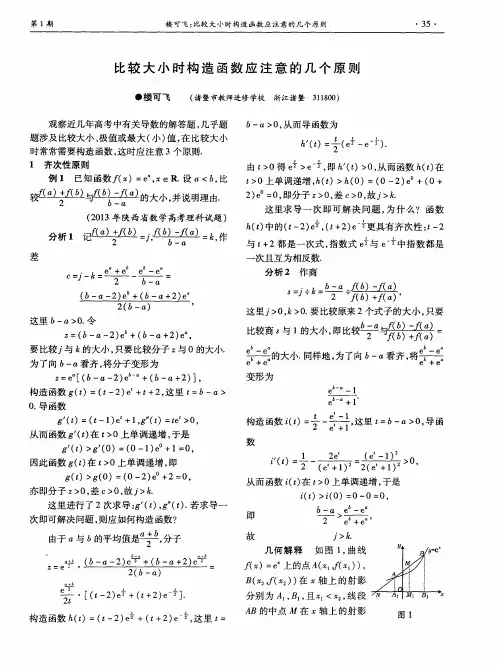 第1期
楼可飞:比较大小时构造函数应注意的几个原则
·35·
比较大小时构造函数应注意的几个原则
●楼可飞 (诸暨市教师进修学校 浙江诸暨 311800)
观察近几年高考中有关导数的解答题,几乎题
题涉及比较大小、极值或最大(小)值,在比较大小
时常常需要构造函数,这时应注意3个原则.
1 齐次性原则
例1 已知函数f(x)=e^x,x∈R.设a<b,比
较(f(a)+f(b))/2与(f(b)-f(a))/(b-a)的大小,并说明理由.
(2013年陕西省数学高考理科试题)
分析1 记(f(a)+f(b))/2=j,(f(b)-f(a))/(b-a)=k,作
差
c=j-k=(e^a+e^b)/2-(e^b-e^a)/(b-a)=
((b-a-2)e^b+(b-a+2)e^a)/(2(b-a)),
这里b-a>0.令
z=(b-a-2)e^b+(b-a+2)e^a,
要比较j与k的大小,只要比较分子z与0的大小.
为了向b-a看齐,将分子变形为
z=e^a[(b-a-2)e^(b-a)+(b-a+2)],
构造函数g(t)=(t-2)e^t+t+2,这里t=b-a>
0.导函数
g′(t)=(t-1)e^t+1,g″(t)=te^t>0,
从而函数g′(t)在t>0上单调递增,于是
g′(t)>g′(0)=(0-1)e^0+1=0,
因此函数g(t)在t>0上单调递增,即
g(t)>g(0)=(0-2)e^0+2=0,
亦即分子z>0,差c>0,故j>k.
这里进行了2次求导:g′(t),g″(t).若求导一
次即可解决问题,则应如何构造函数?
由于a与b的平均值是(a+b)/2,分子
z=e^((a+b)/2)·((b-a-2)e^((b-a)/2)+(b-a+2)e^((a-b)/2))/(2(b-a))=
e^((a+b)/2)/(2t)·[(t-2)e^(t/2)+(t+2)e^(-t/2)].
构造函数h(t)=(t-2)e^(t/2)+(t+2)e^(-t/2),这里t=
b-a>0,从而导函数为
h′(t)=t/2(e^(t/2)-e^(-t/2)).
由t>0得e^(t/2)>e^(-t/2),即h′(t)>0,从而函数h(t)在
t>0上单调递增,h(t)>h(0)=(0-2)e^0+(0+
2)e^0=0,即分子z>0,差c>0,故j>k.
这里求导一次即可解决问题,为什么?函数
h(t)中的(t-2)e^(t/2),(t+2)e^(-t/2)更具有齐次性:t-2
与t+2都是一次式,指数式e^(t/2)与e^(-t/2)中指数都是
一次且互为相反数.
分析2 作商
s=j÷k=(b-a)/2÷(f(b)-f(a))/(f(b)+f(a)),
这里j>0,k>0.要比较原来2个式子的大小,只要
比较商s与1的大小,即比较(b-a)/2与(f(b)-f(a))/(f(b)+f(a))=
(e^b-e^a)/(e^b+e^a)的大小.同样地,为了向b-a看齐,将(e^b-e^a)/(e^b+e^a)
变形为
(e^(b-a)-1)/(e^(b-a)+1).
构造函数i(t)=t/2-(e^t-1)/(e^t+1),这里t=b-a>0,导函
数
i′(t)=1/2-2e^t/(e^t+1)^2=(e^t-1)^2/(2(e^t+1)^2)>0,
从而函数i(t)在t>0上单调递增,于是
i(t)>i(0)=0-0=0,
即 (b-a)/2>(e^b-e^a)/(e^b+e^a),
故 j>k.
几何解释 如图1,曲线
f(x)=e^x上的点A(x₁,f(x₁)),
B(x₂,f(x₂))在x轴上的射影
分别为A₁,B₁,且x₁<x₂,线段
AB的中点M在x轴上的射影
图1